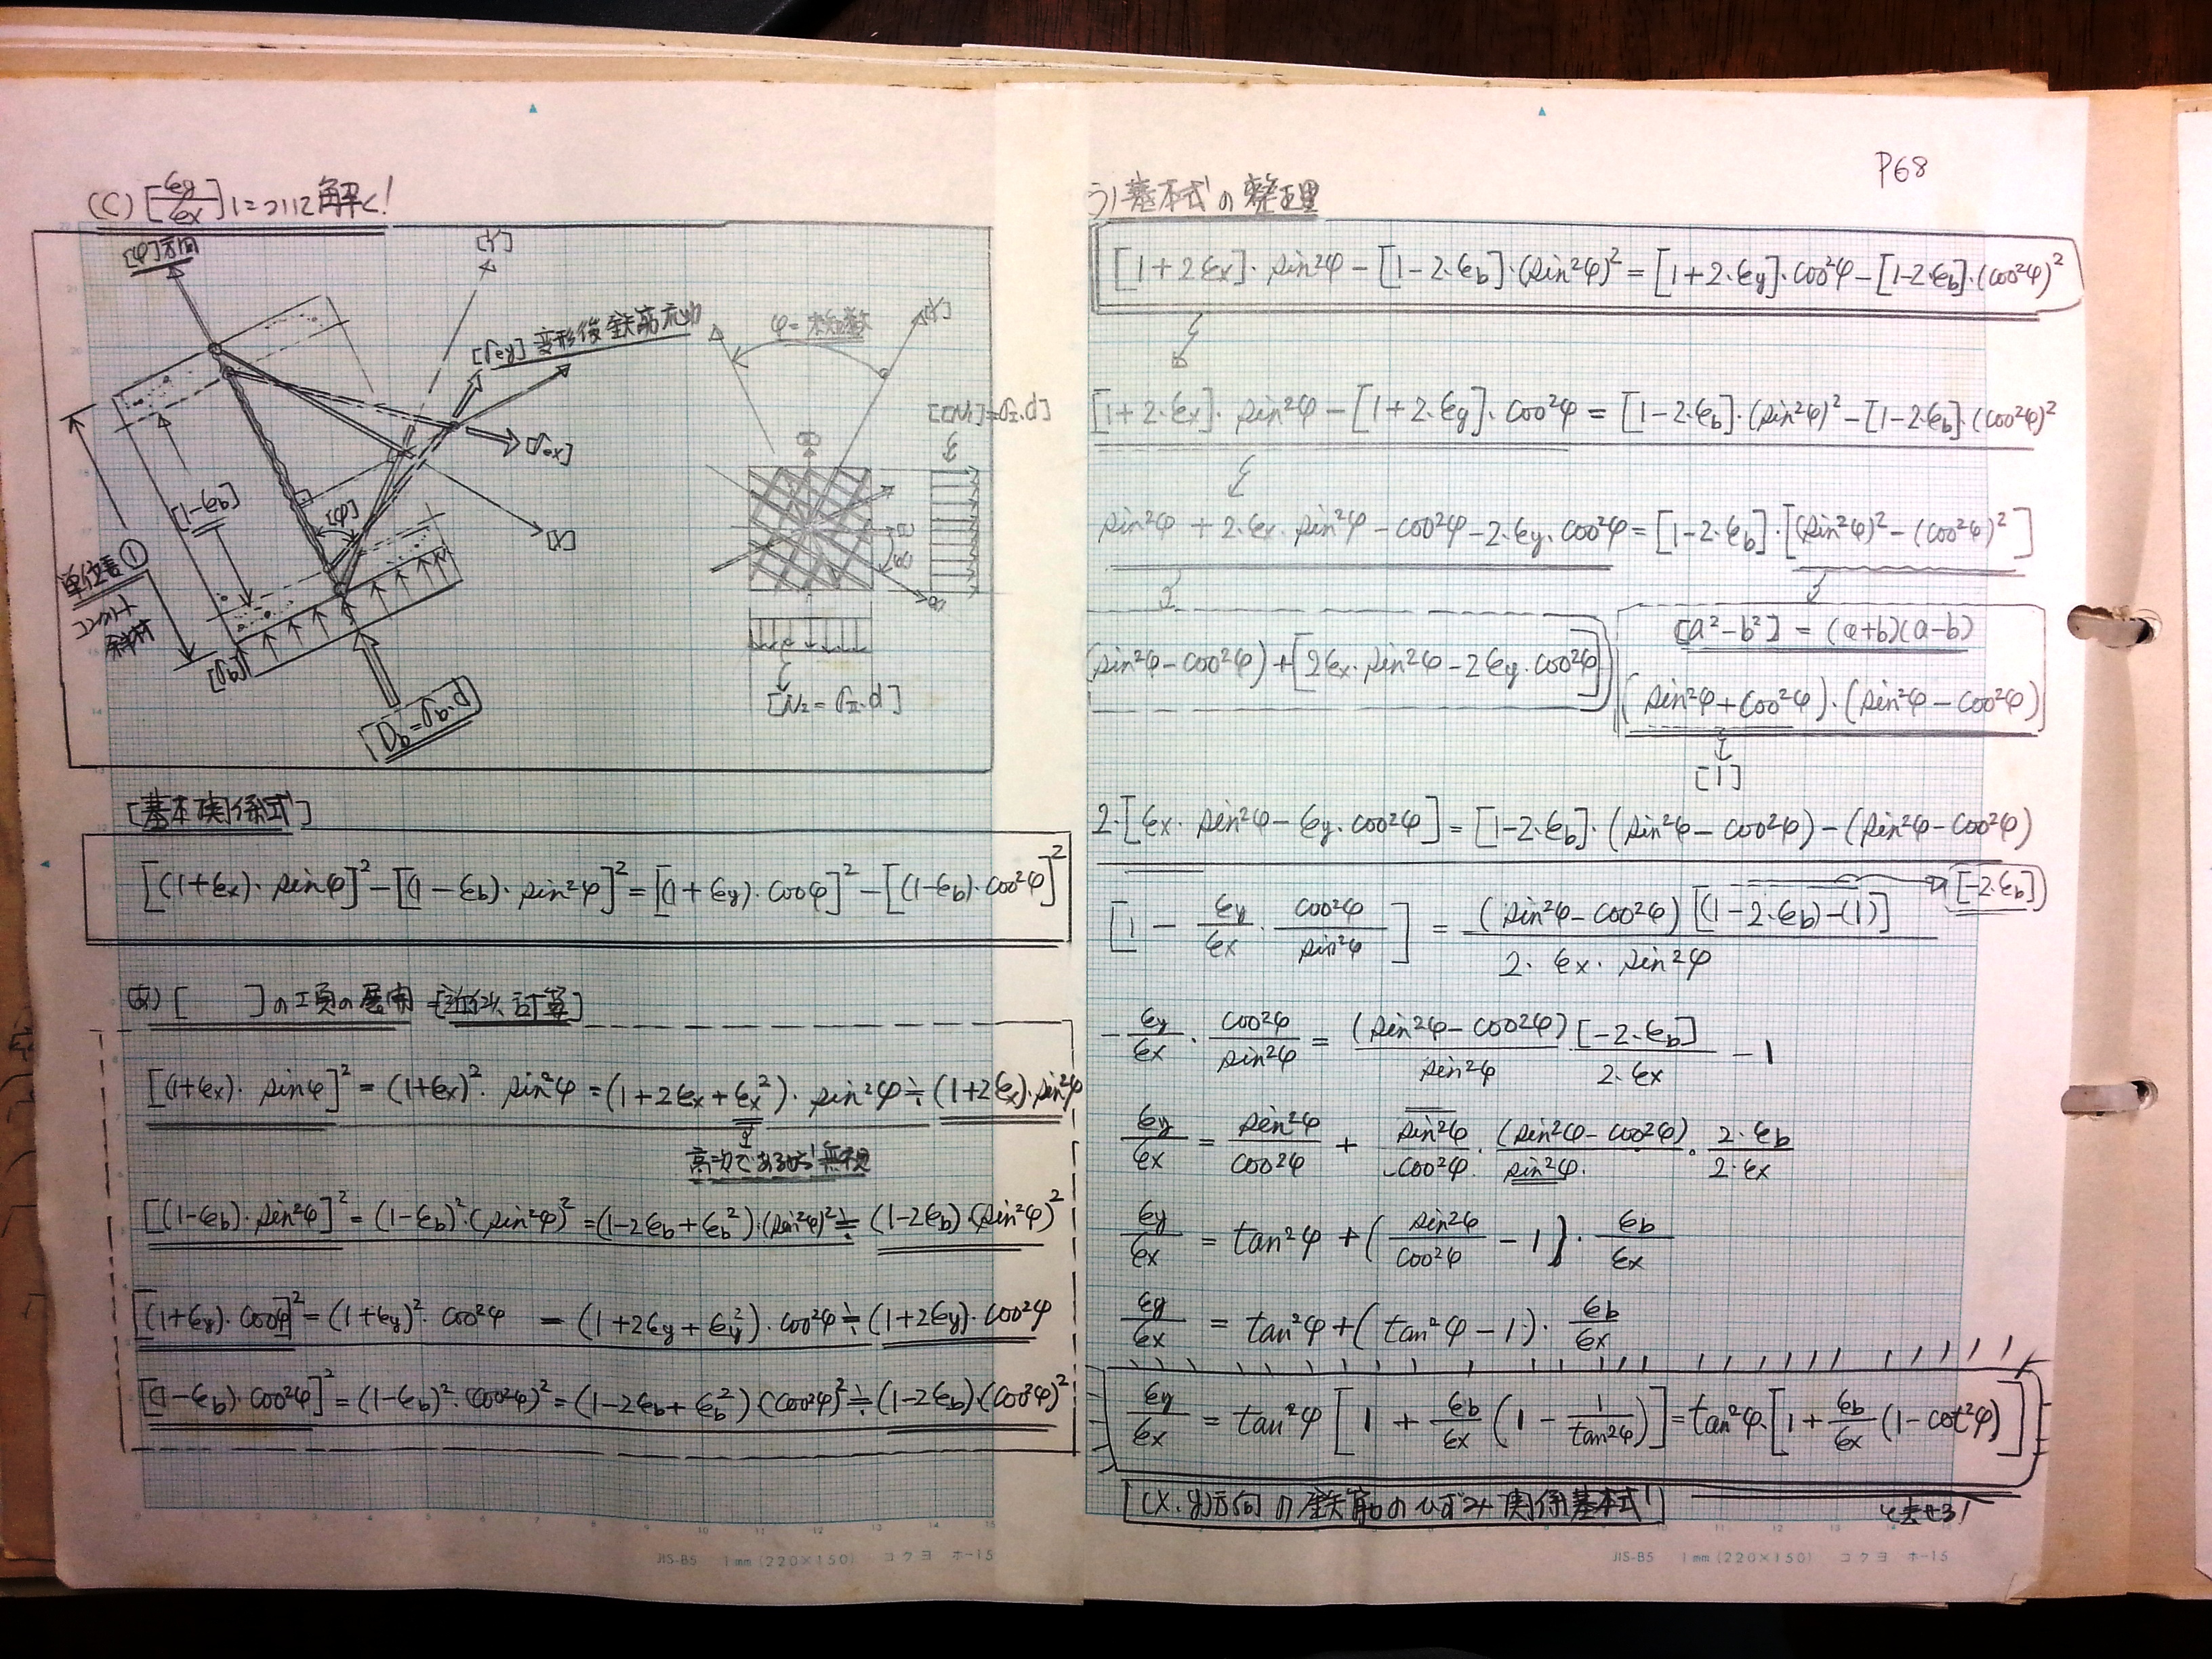 P68
(C) [εy/εx]について解く!
[φ]方向
[Y]
[σey] 変形後鉄筋応力
[σex]
[X]
[1-εb]
[φ]
単位長①
コンクリート
斜材
[σb]
[Db=σb·d]
φ=未知数
[Y]
[[N1]=σI·d]
[N2=σII·d]
[基本関係式]
[(1+εx)·sinφ]²-[(1-εb)·sin²φ]²=[(1+εy)·cosφ]²-[(1-εb)·cos²φ]²
(あ) [ ]の工頁の展開 [近似計算]
[(1+εx)·sinφ]²=(1+εx)²·sin²φ=(1+2εx+εx²)·sin²φ≒(1+2εx)·sin²φ
高次であるから無視
[(1-εb)·sin²φ]²=(1-εb)²·(sin²φ)²=(1-2εb+εb²)·(sin²φ)²≒(1-2εb)·(sin²φ)²
[(1+εy)·cosφ]²=(1+εy)²·cos²φ=(1+2εy+εy²)·cos²φ≒(1+2εy)·cos²φ
[(1-εb)·cos²φ]²=(1-εb)²·(cos²φ)²=(1-2εb+εb²)(cos²φ)²≒(1-2εb)·(cos²φ)²
JIS-B5 1mm(220×150) コクヨ ホ-15
う)基本式の整理
[1+2εx]·sin²φ-[1-2·εb]·(sin²φ)²=[1+2·εy]·cos²φ-[1-2·εb]·(cos²φ)²
[1+2·εx]·sin²φ-[1+2·εy]·cos²φ=[1-2·εb]·(sin²φ)²-[1-2·εb]·(cos²φ)²
sin²φ+2·εx·sin²φ-cos²φ-2·εy·cos²φ=[1-2·εb]·[(sin²φ)²-(cos²φ)²]
[a²-b²]=(a+b)(a-b)
(sin²φ-cos²φ)+[2εx·sin²φ-2εy·cos²φ]
(sin²φ+cos²φ)·(sin²φ-cos²φ)
[1]
2·[εx·sin²φ-εy·cos²φ]=[1-2·εb]·(sin²φ-cos²φ)-(sin²φ-cos²φ)
[-2·εb]
[1-εy/εx·cos²φ/sin²φ]=(sin²φ-cos²φ)[(1-2·εb)-(1)]/2·εx·sin²φ
-εy/εx·cos²φ/sin²φ=(sin²φ-cos²φ)/sin²φ·[-2·εb]/2·εx-1
εy/εx=sin²φ/cos²φ+sin²φ/cos²φ·(sin²φ-cos²φ)/sin²φ·2·εb/2·εx
εy/εx=tan²φ+(sin²φ/cos²φ-1)·εb/εx
εy/εx=tan²φ+(tan²φ-1)·εb/εx
εy/εx=tan²φ[1+εb/εx(1-1/tan²φ)]=tan²φ·[1+εb/εx(1-cot²φ)]
[(X.y)方向の鉄筋のひずみ関係基本式]
JIS-B5 1mm(220×150) コクヨ ホ-15